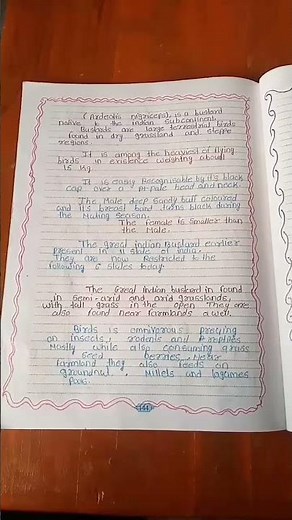 (Ardeotis nigriceps), is a bustard
native to the Indian subcontinent
Bustards are large terrestrial birds
found in dry grassland and steppe
regions.
It is among the heaviest of flying
birds in existence weighing about
15 kg
It is easily Recognisable by it's black
cap over a Pale head and neck.
The Male deep Sandy buff coloured
and its breast band turns black during
the Mating Season.
The female is Smaller than
the Male.
The great indian Bustard earlier
Present in 11 state of india.
They are now Restricted to the
following 5 States today.
The Great indian Bustard in found
in Semi-arid and arid grasslands,
with tall grass in the open They are
also found near farmlands a well.
Birds is omnivorous preying
on insects, rodents and Reptiles
Mostly while also consuming grass
Seed berries, Near
farmland they also feeds on
groundnut, Millets and legumes
Pods.